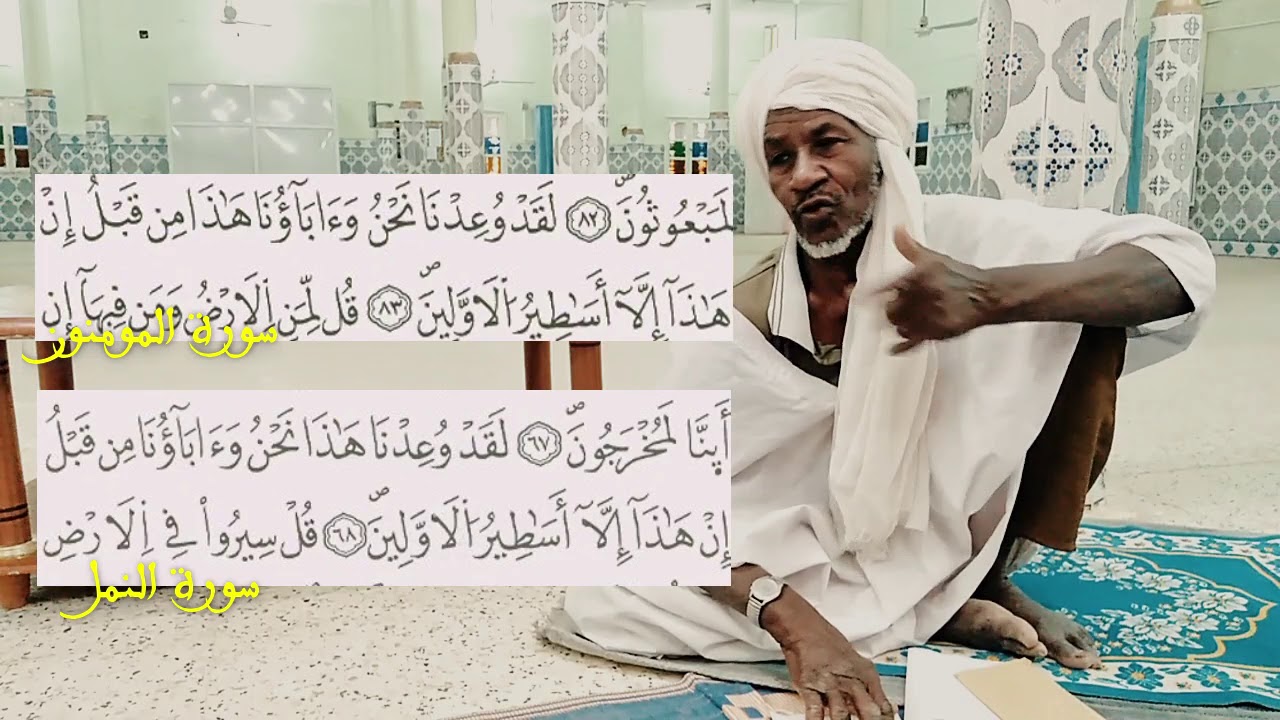 لَمَبْعُوثُونَ ۝٨٢ لَقَدْ وُعِدْنَا نَحْنُ وَءَابَآؤُنَا هَٰذَا مِن قَبْلُ إِنْ
هَٰذَآ إِلَّآ أَسَٰطِيرُ اُ۬لَاوَّلِينَۖ ۝٨٣ قُل لِّمَنِ اِ۬لَارْضُ وَمَن فِيهَآ إِن
سورة المومنون
أَىِٕنَّا لَمُخْرَجُونَۖ ۝٦٧ لَقَدْ وُعِدْنَا هَٰذَا نَحْنُ وَءَابَآؤُنَا مِن قَبْلُ
إِنْ هَٰذَآ إِلَّآ أَسَٰطِيرُ اُ۬لَاوَّلِينَۖ ۝٦٨ قُلْ سِيرُواْ فِے اِ۬لَارْضِ
سورة النمل